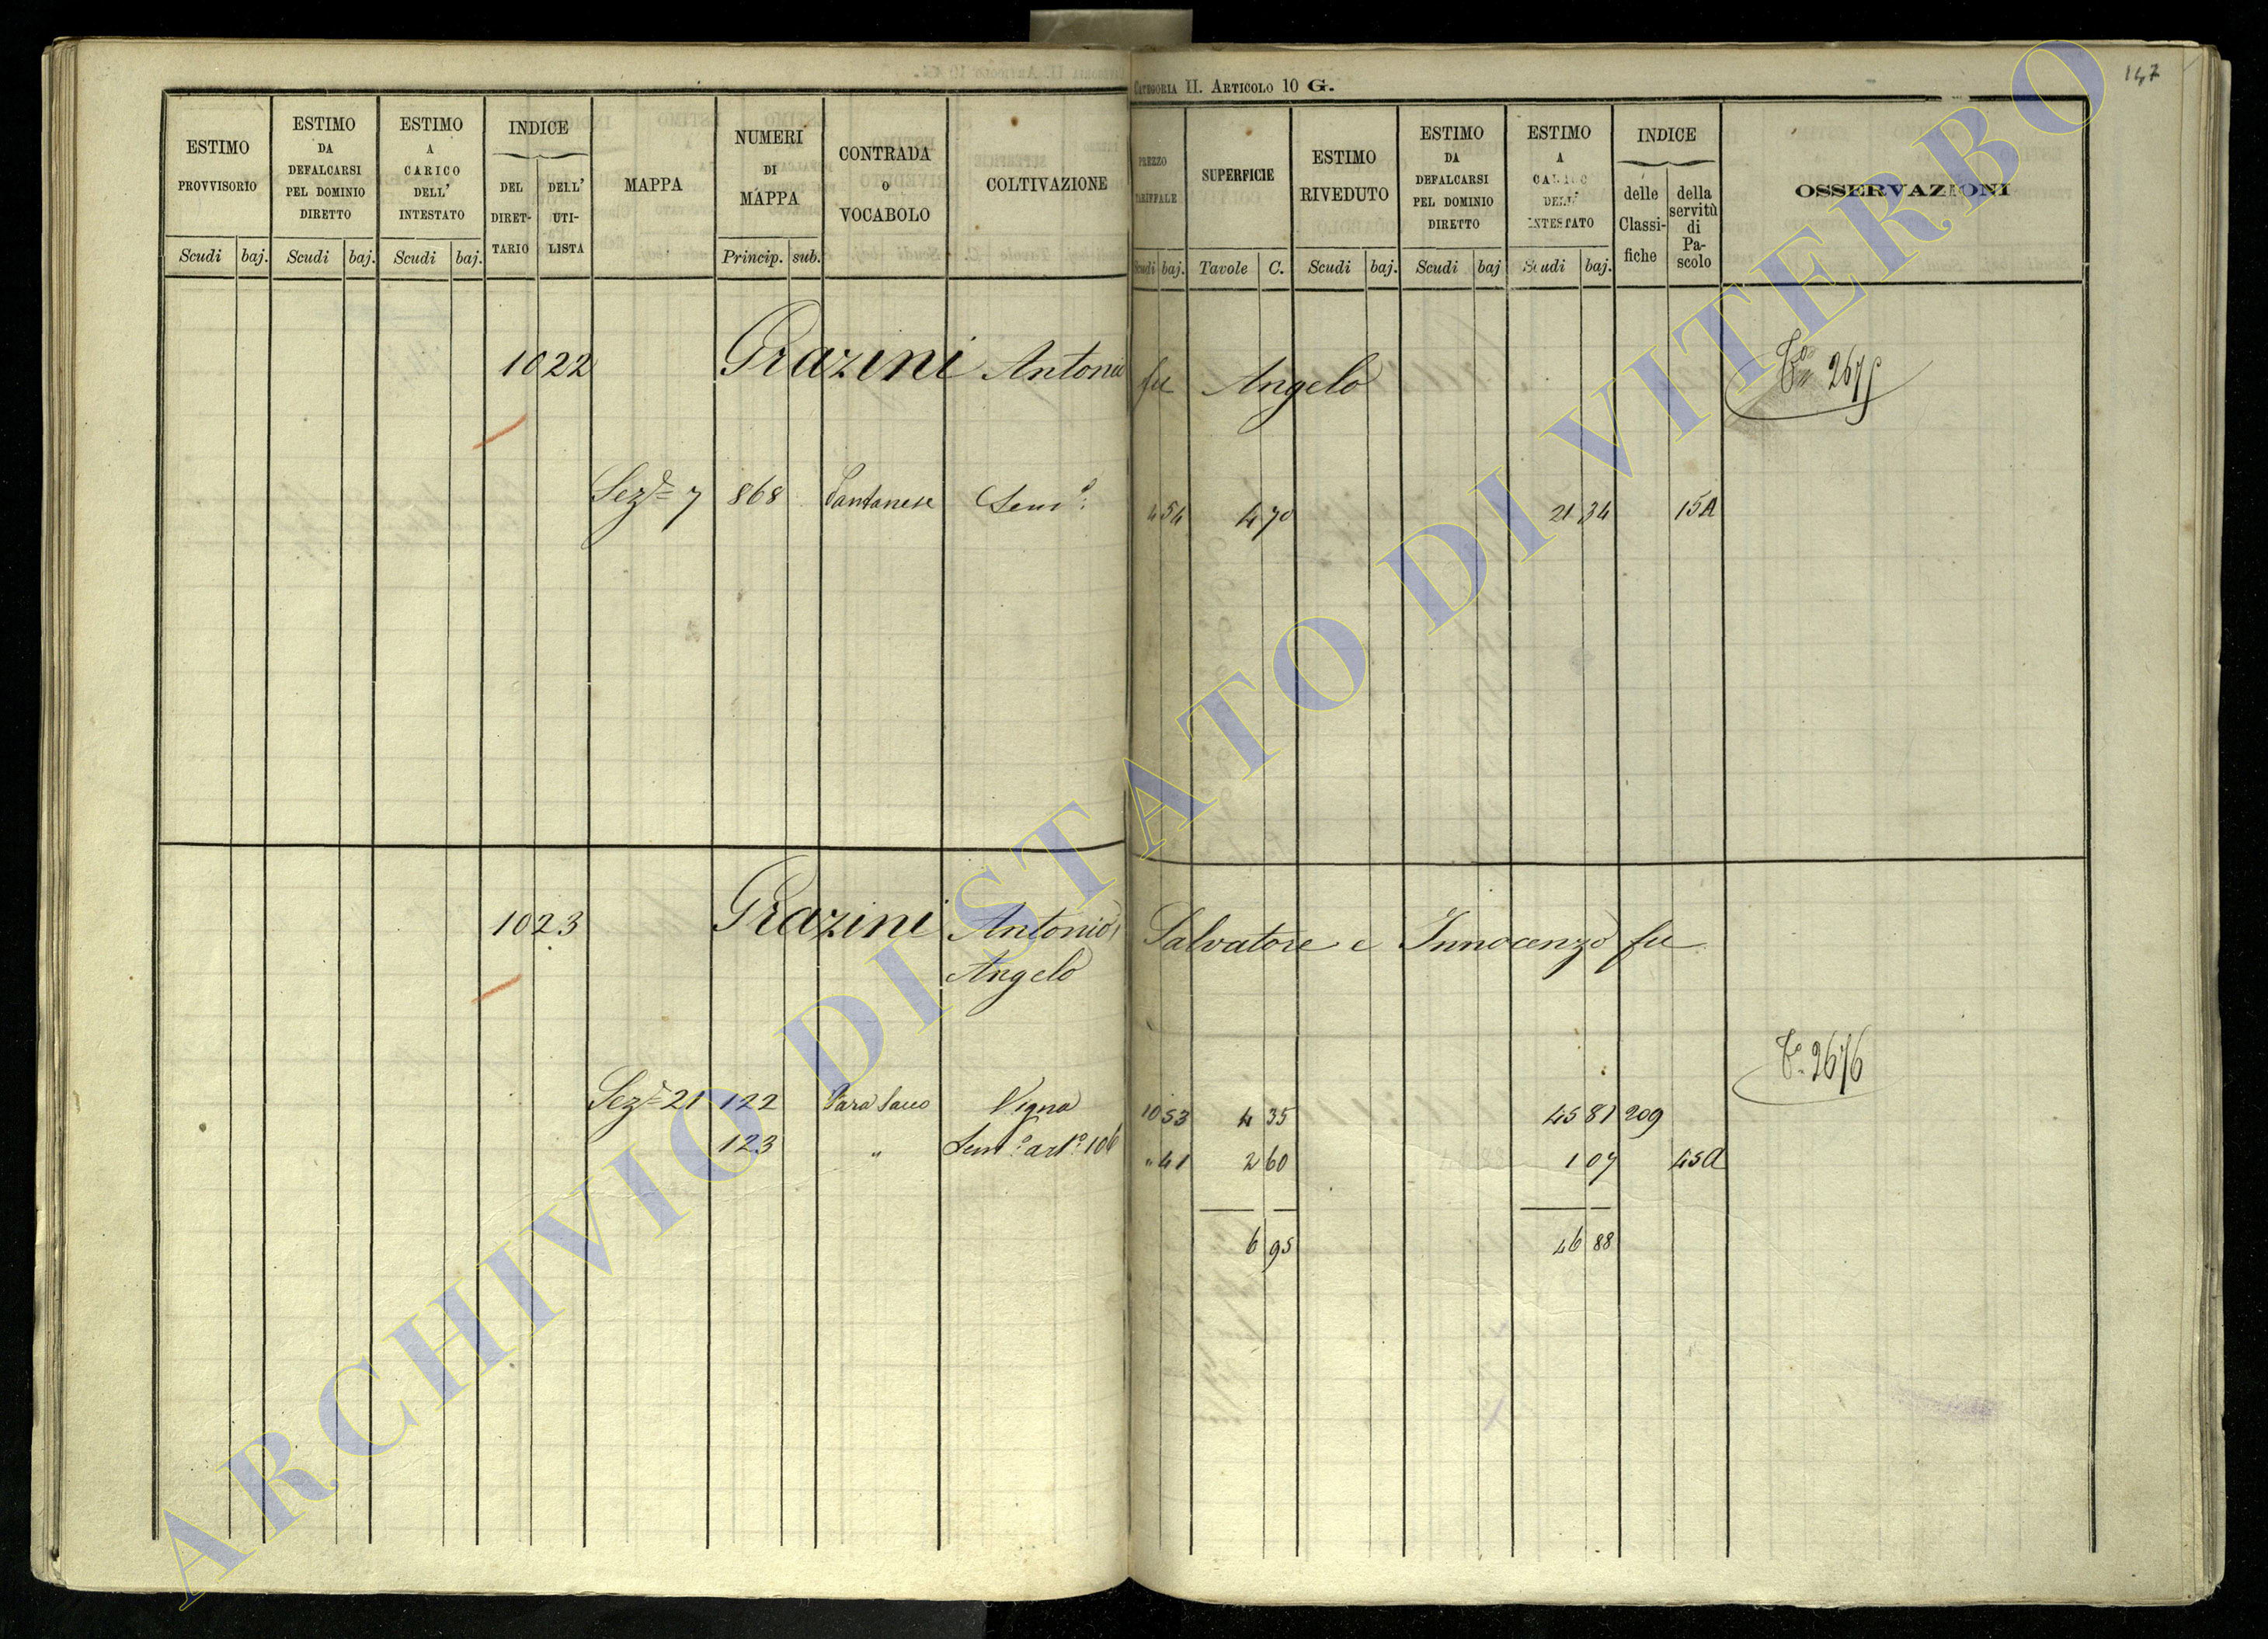 147
CATEGORIA II. ARTICOLO 10 G.
ESTIMO PROVVISORIO
Scudi baj.
ESTIMO DA DEFALCARSI PEL DOMINIO DIRETTO
Scudi baj.
ESTIMO A CARICO DELL' INTESTATO
Scudi baj.
INDICE
DEL DIRET-TARIO
DELL' UTI-LISTA
MAPPA
NUMERI DI MAPPA
Princip. sub.
CONTRADA O VOCABOLO
COLTIVAZIONE
PREZZO TARIFFALE
Scudi baj.
SUPERFICIE
Tavole C.
ESTIMO RIVEDUTO
Scudi baj.
ESTIMO DA DEFALCARSI PEL DOMINIO DIRETTO
Scudi baj
ESTIMO A CARICO DELL' INTESTATO
Scudi baj.
INDICE
delle Classi-fiche
della servitù di Pa-scolo
OSSERVAZIONI
1022 Grazini Antonio fu Angelo
Sez.e 7 868 Santanese Sem.o 4 54 4 70 21 34 15A
1023 Grazini Antonio, Salvatore e Innocenzo fu
Angelo
2676
Sez.e 21 122 Vigna 10 53 4 35 45 81 209
123 " Sem.o art.o 106 " 41 2 60 1 07 45A
6 95 46 88
ARCHIVIO DI STATO DI VITERBO